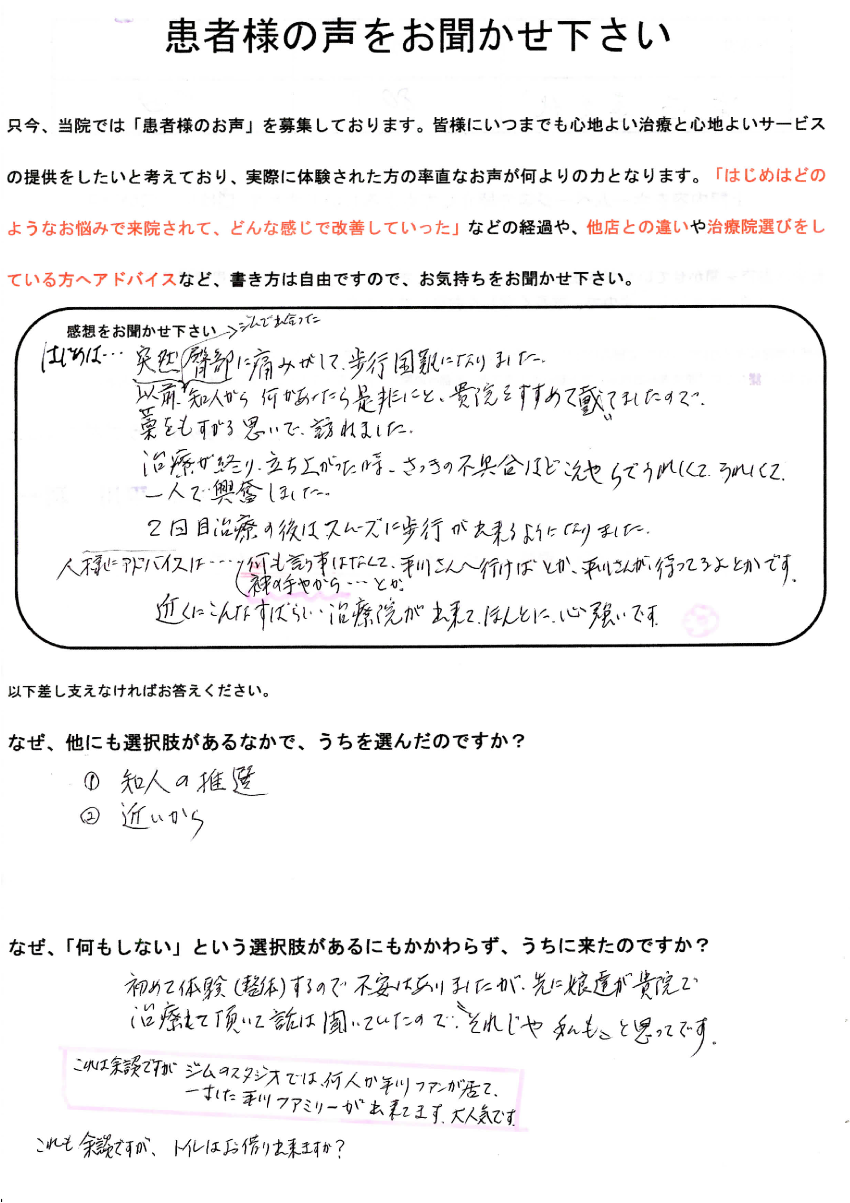 患者様の声をお聞かせ下さい
只今、当院では「患者様のお声」を募集しております。皆様にいつまでも心地よい治療と心地よいサービス
の提供をしたいと考えており、実際に体験された方の率直なお声が何よりの力となります。「はじめはどの
ようなお悩みで来院されて、どんな感じで改善していった」などの経過や、他店との違いや治療院選びをし
ている方へアドバイスなど、書き方は自由ですので、お気持ちをお聞かせ下さい。
感想をお聞かせ下さい
ジムで出会った
はじめは… 突然臀部に痛みがして、歩行困難になりました。
以前、知人から何かあったら是非にと、貴院をすすめて戴てましたので、
藁をもすがる思いで、訪れました。
治療が終り、立ち上がった時、さっきの不具合はどこへやらでうれしくて、うれしくて、
一人で興奮しました。
2回目治療の後はスムーズに歩行が出来るようになりました。
人様にアドバイスは…何も言う事はなくて、平川さんへ行けばとか、平川さんが待ってるよとかです。
神の手やから…とか。
近くにこんなすばらしい治療院が出来て、ほんとに、心強いです。
以下差し支えなければお答えください。
なぜ、他にも選択肢があるなかで、うちを選んだのですか？
① 知人の推選
② 近いから
なぜ、「何もしない」という選択肢があるにもかかわらず、うちに来たのですか？
初めて体験(整体)するので不安はありましたが、先に娘達が貴院で
治療して頂いて話は聞いていたので、“それじゃ私も”と思ってです。
これは余談ですが ジムのスタジオでは、何人か平川ファンが居て、
一した平川ファミリーが出来てます。大人気です。
これも余談ですが、トイレはお借り出来ますか？